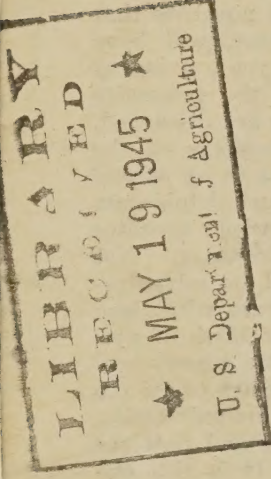 LIBRARY
RECEIVED
★ MAY 19 1945 ★
U. S. Department of Agriculture